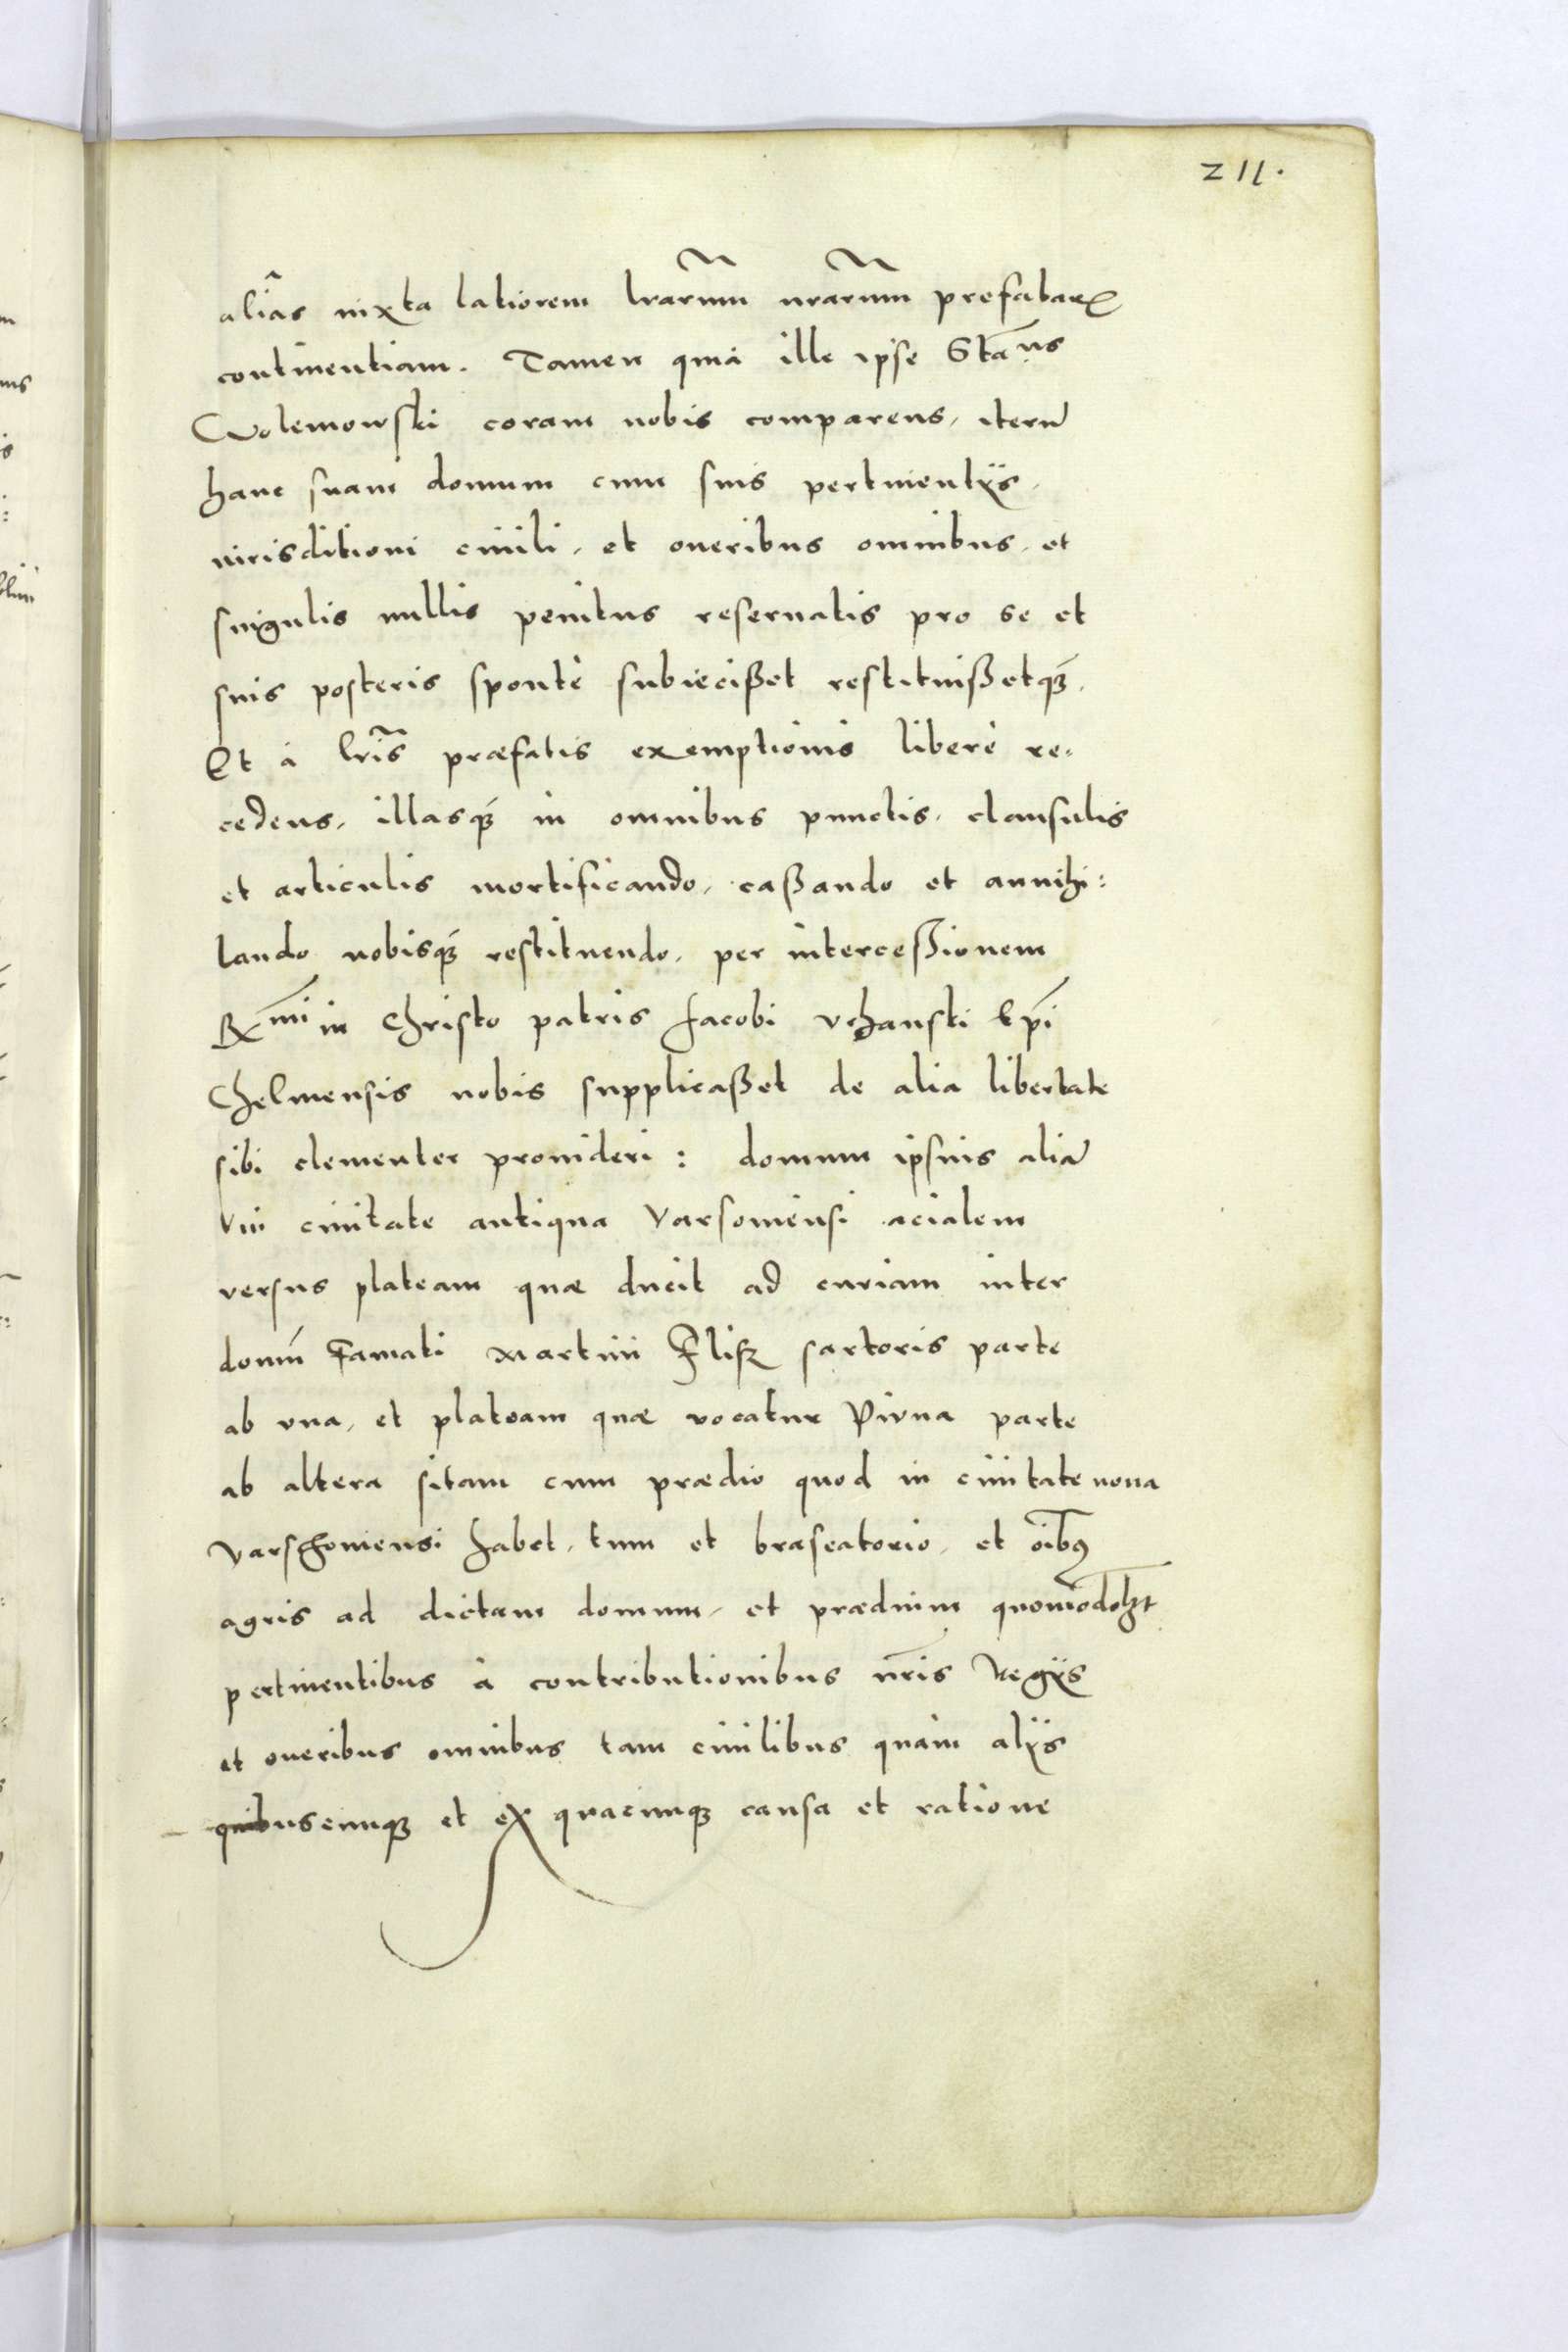 211.
aliãs iuxta latiorem lrarum nrarum prefatarꝝ
continentiam. Tamen quià ille ipse Sta͠ns
Wolemowski coram nobis comparens, iterũ
hanc suam domum cum suis pertinentijs,
iurisditioni ciuili, et oneribus omnibus, et
singulis nullis penitus reseruatis pro se et
suis posteris spontè subiecißet restituißetqꝫ.
Et à lris̃ præfatis exemptionis liberè re-
cedens, illasqꝫ in omnibus punctis, clausulis
et articulis mortificando, caßando et annihi:
lando nobisqꝫ restituendo, per intercessionem
Rmi in Christo patris Jacobi Vchanski Epĩ
Chelmensis nobis supplicaßet de alia libertate
sibi clementer prouideri: domum ipsius aliã
in ciuitate antiqua Varsouiensi acialem
versus plateam quæ ducit ad curiam inter
domũ Famati Martini Flisz sartoris parte
ab vna, et plateam quæ vocatur Piuna parte
ab altera sitam cum prædio quod in ciuitate noua
Varschouiensi habet, tum et braseatorio, et oĩbꝰ
agris ad dictam domum, et prædium quomodolȝt
pertinentibus à contributionibus nr̃is Regijs
et oneribus omnibus tam ciuilibus quàm alijs
quibuscunqꝫ et ex quacunqꝫ causa et ratione